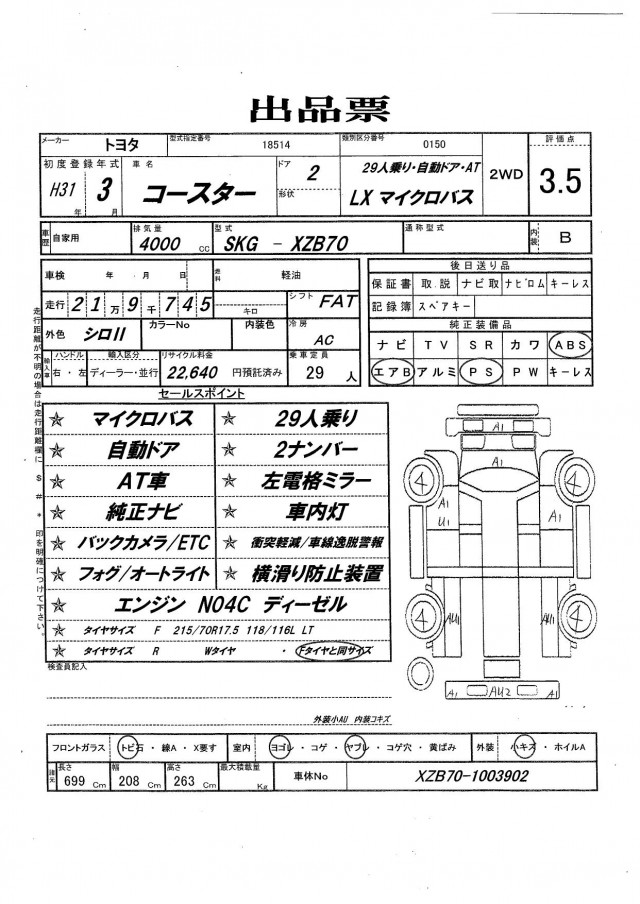 出品票
メーカー トヨタ 型式指定番号 18514 類別区分番号 0150 評価点
初度登録年式 車名 ドア 2 29人乗り・自動ドア・AT 2WD 3.5
H31年 3月 コースター 形状 LX マイクロバス
車歴 自家用 排気量 4000 cc 型式 SKG - XZB70 通称型式 内装 B
車検 年 月 日 燃料 軽油 後日送り品
保証書 取説 ナビ取 ナビロム キーレス
走行 21万9千745 キロ シフト FAT 記録簿 スペアキー
外色 シロII カラーNo 内装色 冷房 AC 純正装備品
ナビ TV SR カワ ABS
輸入車 ハンドル 右・左 輸入区分 ディーラー・並行 リサイクル料金 22,640 円預託済み 乗車定員 29 人 エアB アルミ PS PW キーレス
セールスポイント
☆ マイクロバス ☆ 29人乗り
☆ 自動ドア ☆ 2ナンバー
☆ AT車 ☆ 左電格ミラー
☆ 純正ナビ ☆ 車内灯
☆ バックカメラ/ETC ☆ 衝突軽減/車線逸脱警報
☆ フォグ/オートライト ☆ 横滑り防止装置
☆ エンジン N04C ディーゼル
☆ タイヤサイズ F 215/70R17.5 118/116L LT
☆ タイヤサイズ R Wタイヤ ・ Fタイヤと同サイズ
走行距離が不明の場合は走行距離欄に $ # * 印を明確につけて下さい。
A1
A1
4 4
A1
U1
A1
4 4
AU1 AU1
A1 AU2 A1
検査員記入
外装小AU 内装コキズ
フロントガラス トビ石・線A・X要す 室内 ヨゴレ・コゲ・ヤブレ・コゲ穴・黄ばみ 外装 小キズ・ホイルA
諸元 長さ 699 Cm 幅 208 Cm 高さ 263 Cm 最大積載量 Kg 車体No XZB70-1003902